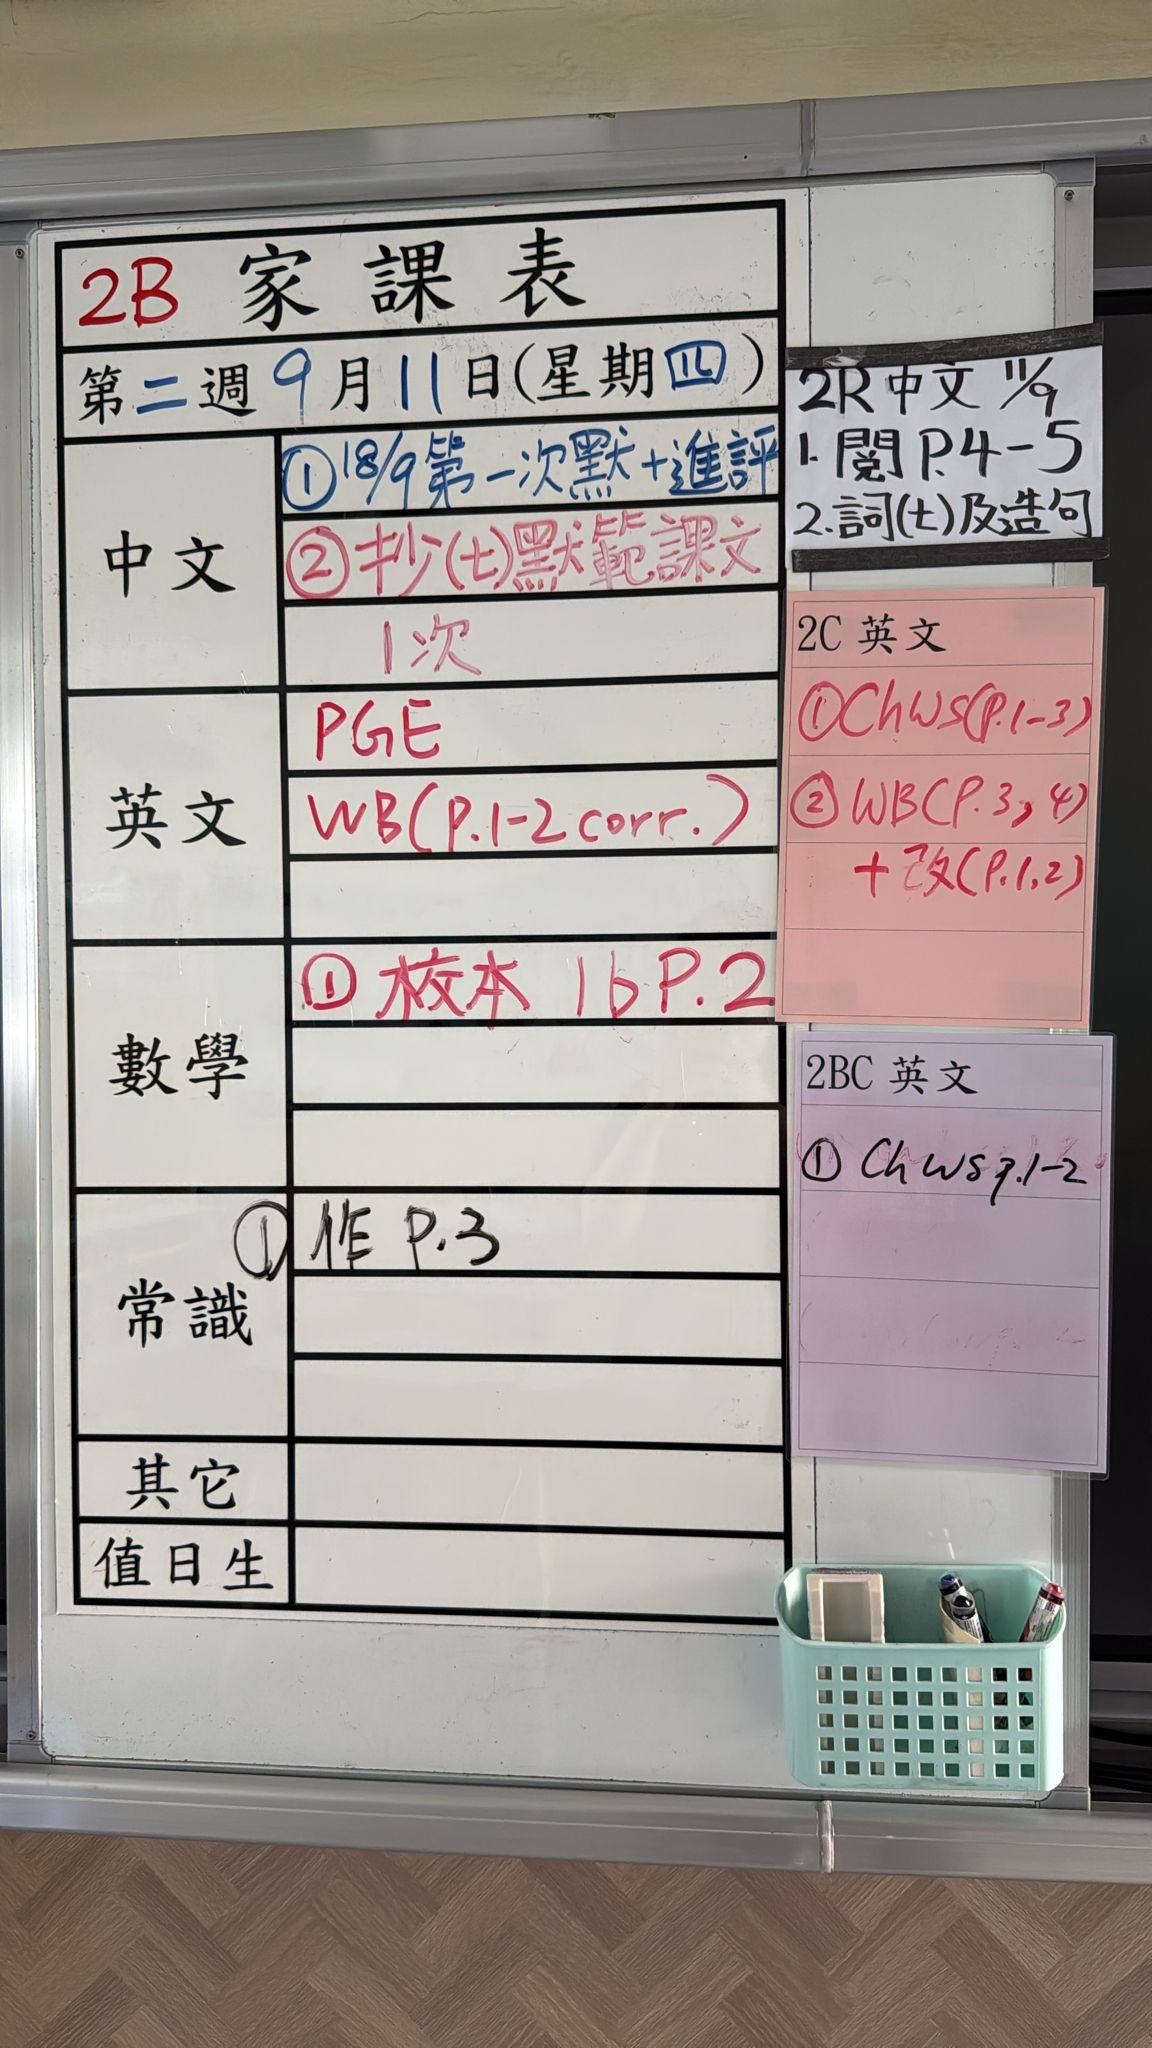 2B 家課表
第二週9月11日(星期四)
中文
① 18/9第一次默+進評
② 抄(七)默範課文
1次
英文
PGE
WB(P.1-2 corr.)
數學
① 校本 1b P.2
常識
① 作 P.3
其它
值日生
2R 中文 11/9
1. 閱 P.4-5
2. 詞(七)及造句
2C 英文
① ChWS(P.1-3)
② WB(P.3,4)
+改(P.1,2)
2BC 英文
① ChWS p.1-2